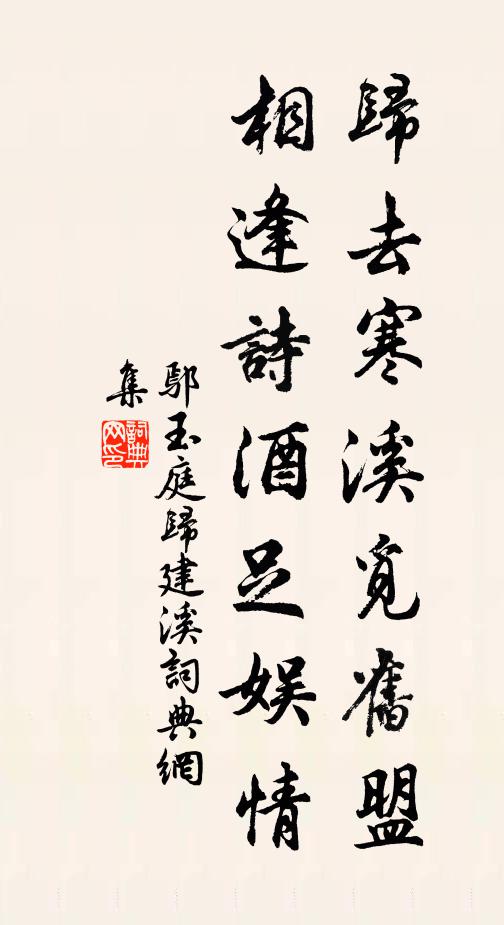 歸去寒溪覓舊盟
相逢詩酒足娛情
鄔玉庭歸建溪詞典網
集
詞典
网印